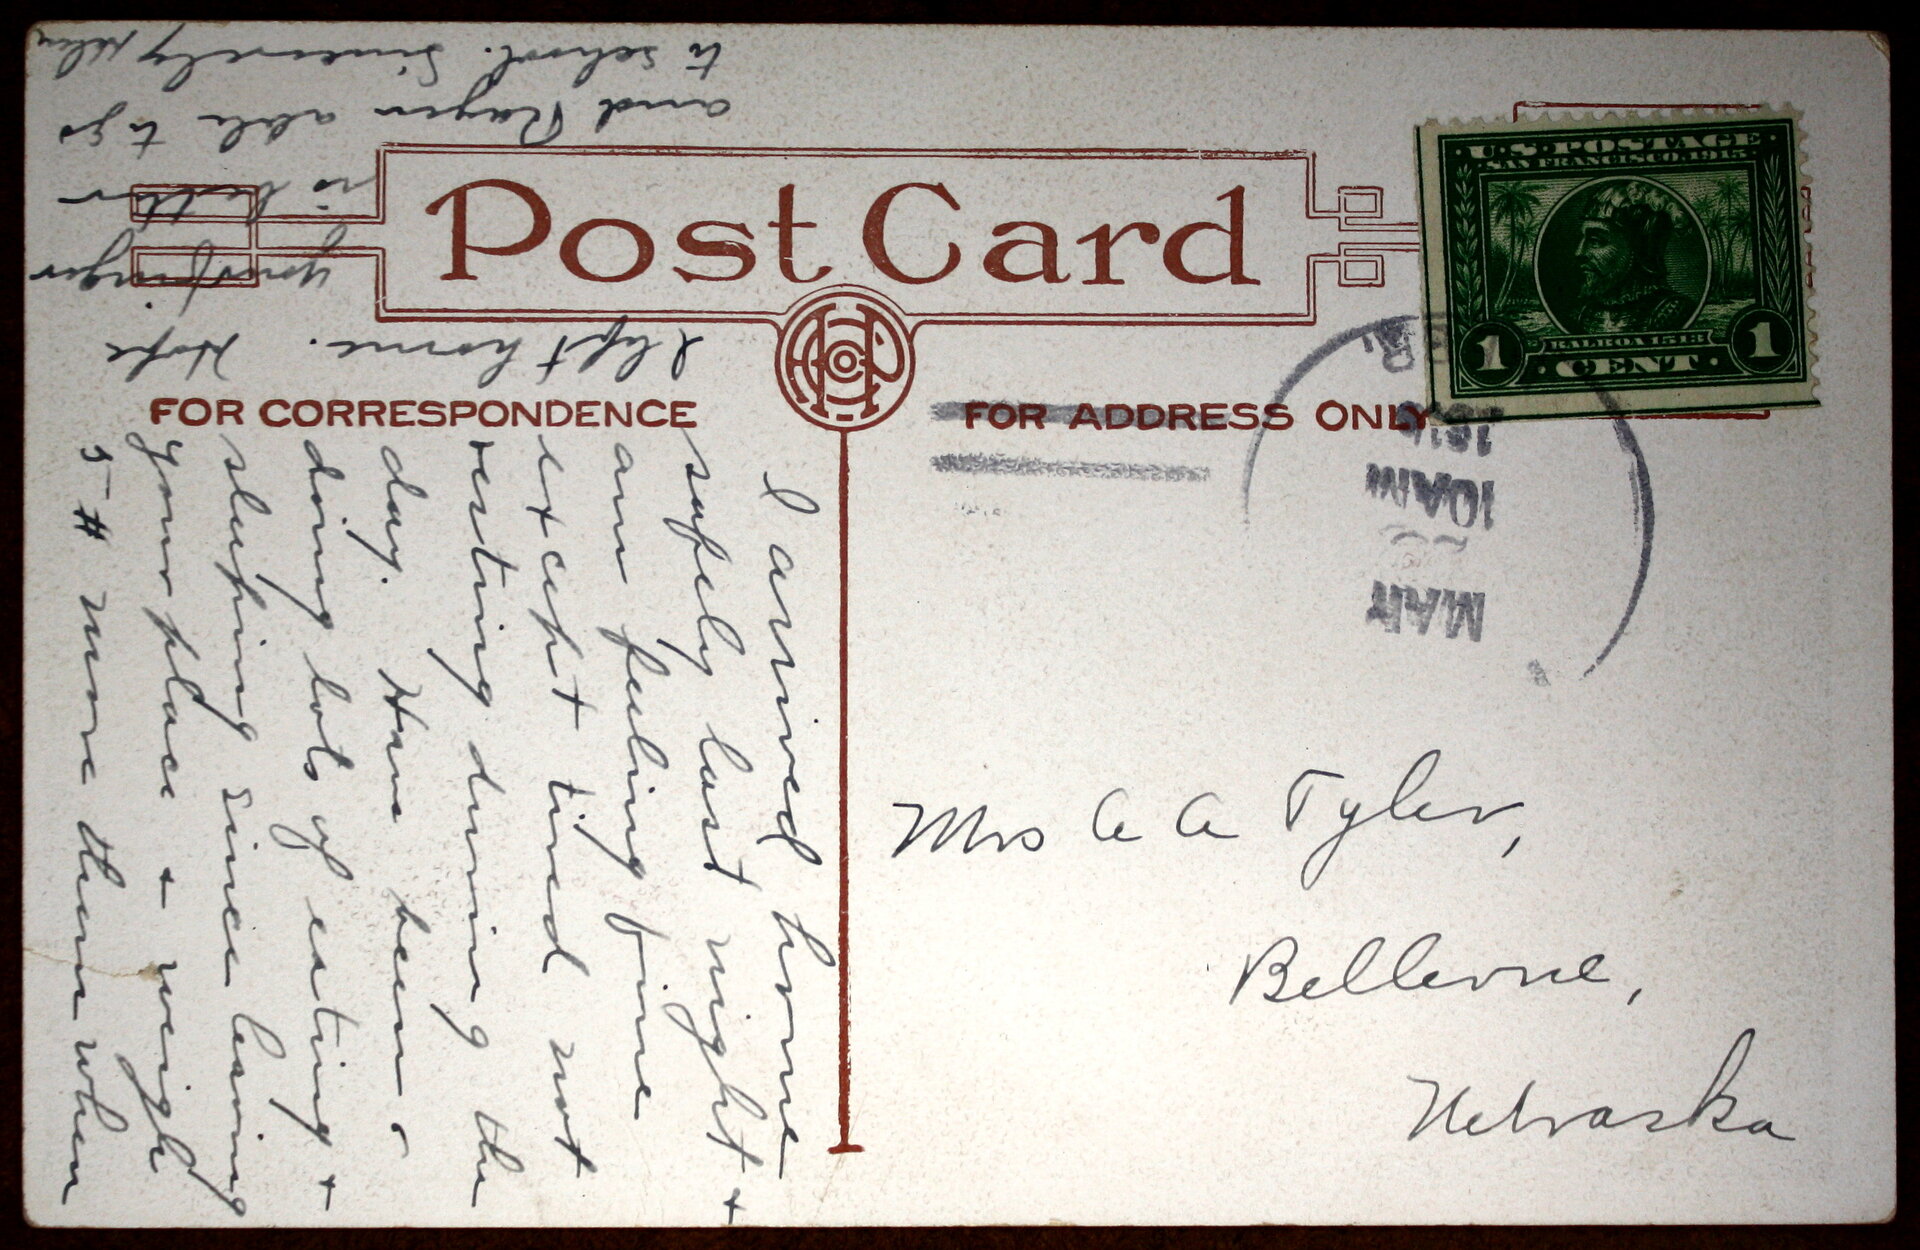 Post Card
FOR CORRESPONDENCE
FOR ADDRESS ONLY
U.S. POSTAGE
SAN FRANCISCO 1915
BALBOA 1513
1 CENT 1
MAR
10AM
Mrs A A Tyler,
Bellevue,
Nebraska
I arrived home
safely last night +
am feeling fine
except tired not
resting during the
day. Have been
doing lots of eating +
sleeping since leaving
your place + weigh
5 # more then when
I left home. Hope
your finger
is better
and Roger able to go
to school. Sincerely Helen